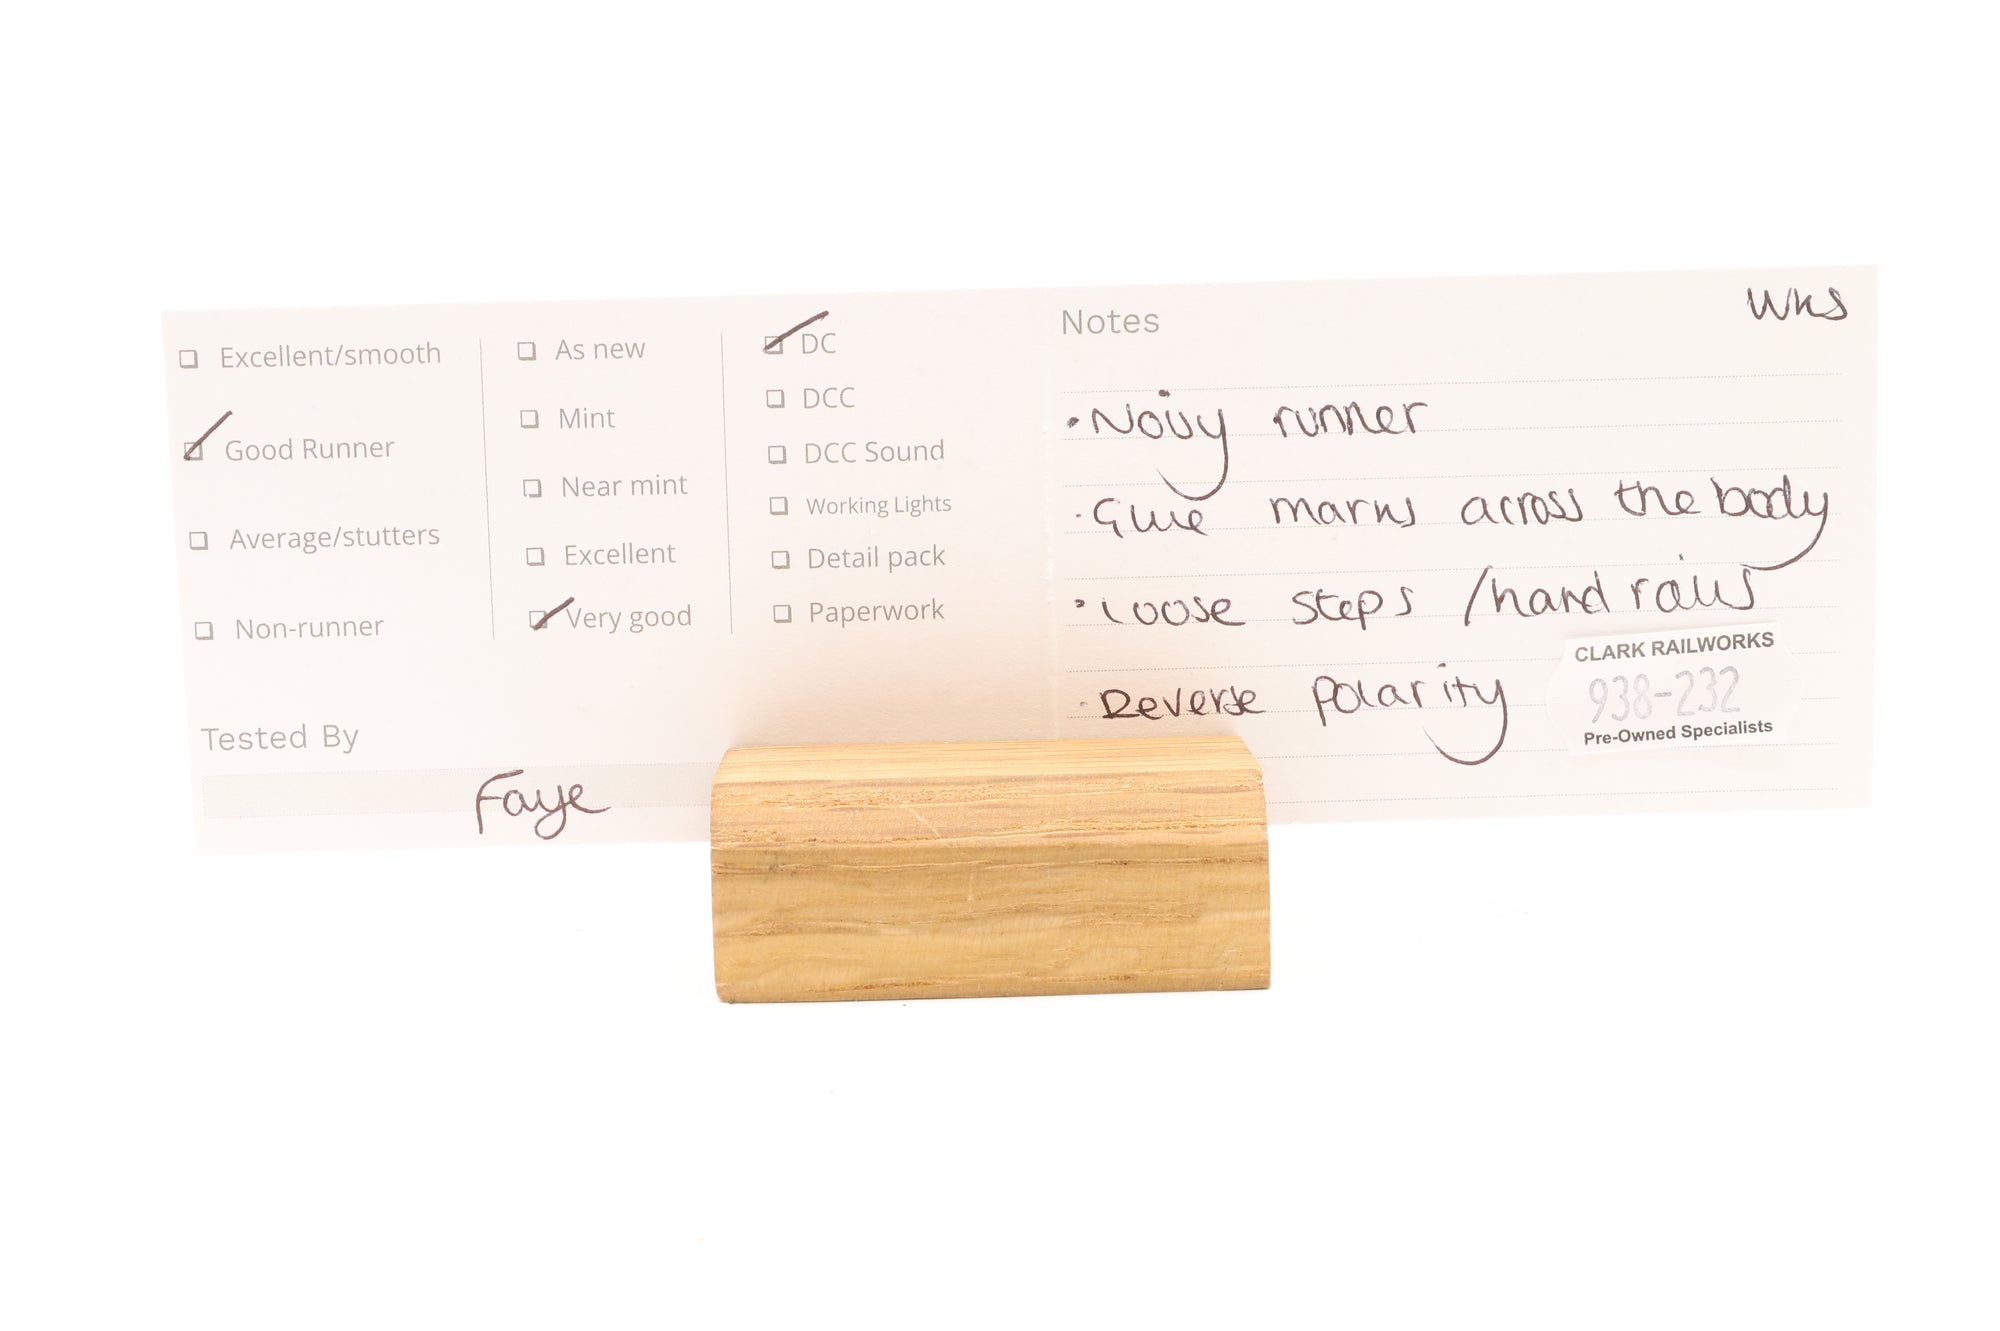 Excellent/smooth
Good Runner
Average/stutters
Non-runner
As new
Mint
Near mint
Excellent
Very good
DC
DCC
DCC Sound
Working Lights
Detail pack
Paperwork
Tested By
Faye
Notes
WKS
• Noisy runner
• Glue marks across the body
• Loose steps / hand rails
• Reverse polarity
CLARK RAILWORKS
938-232
Pre-Owned Specialists